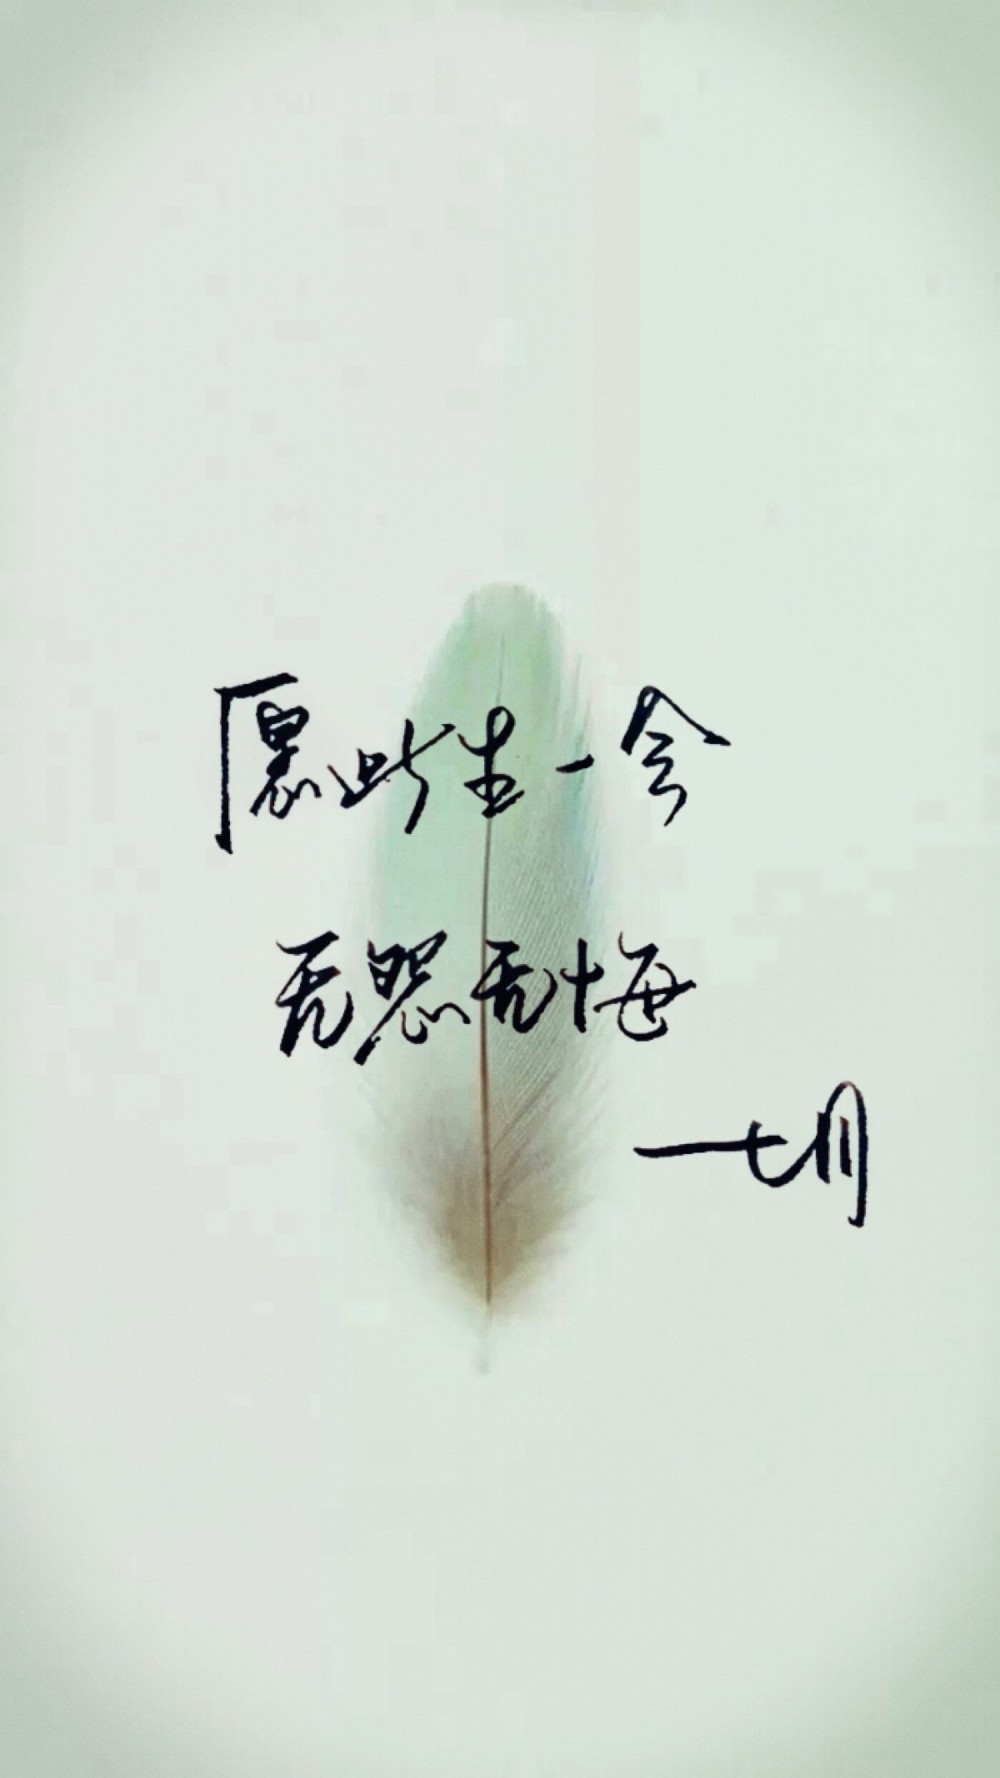 愿此生一会
无怨无悔
一七月